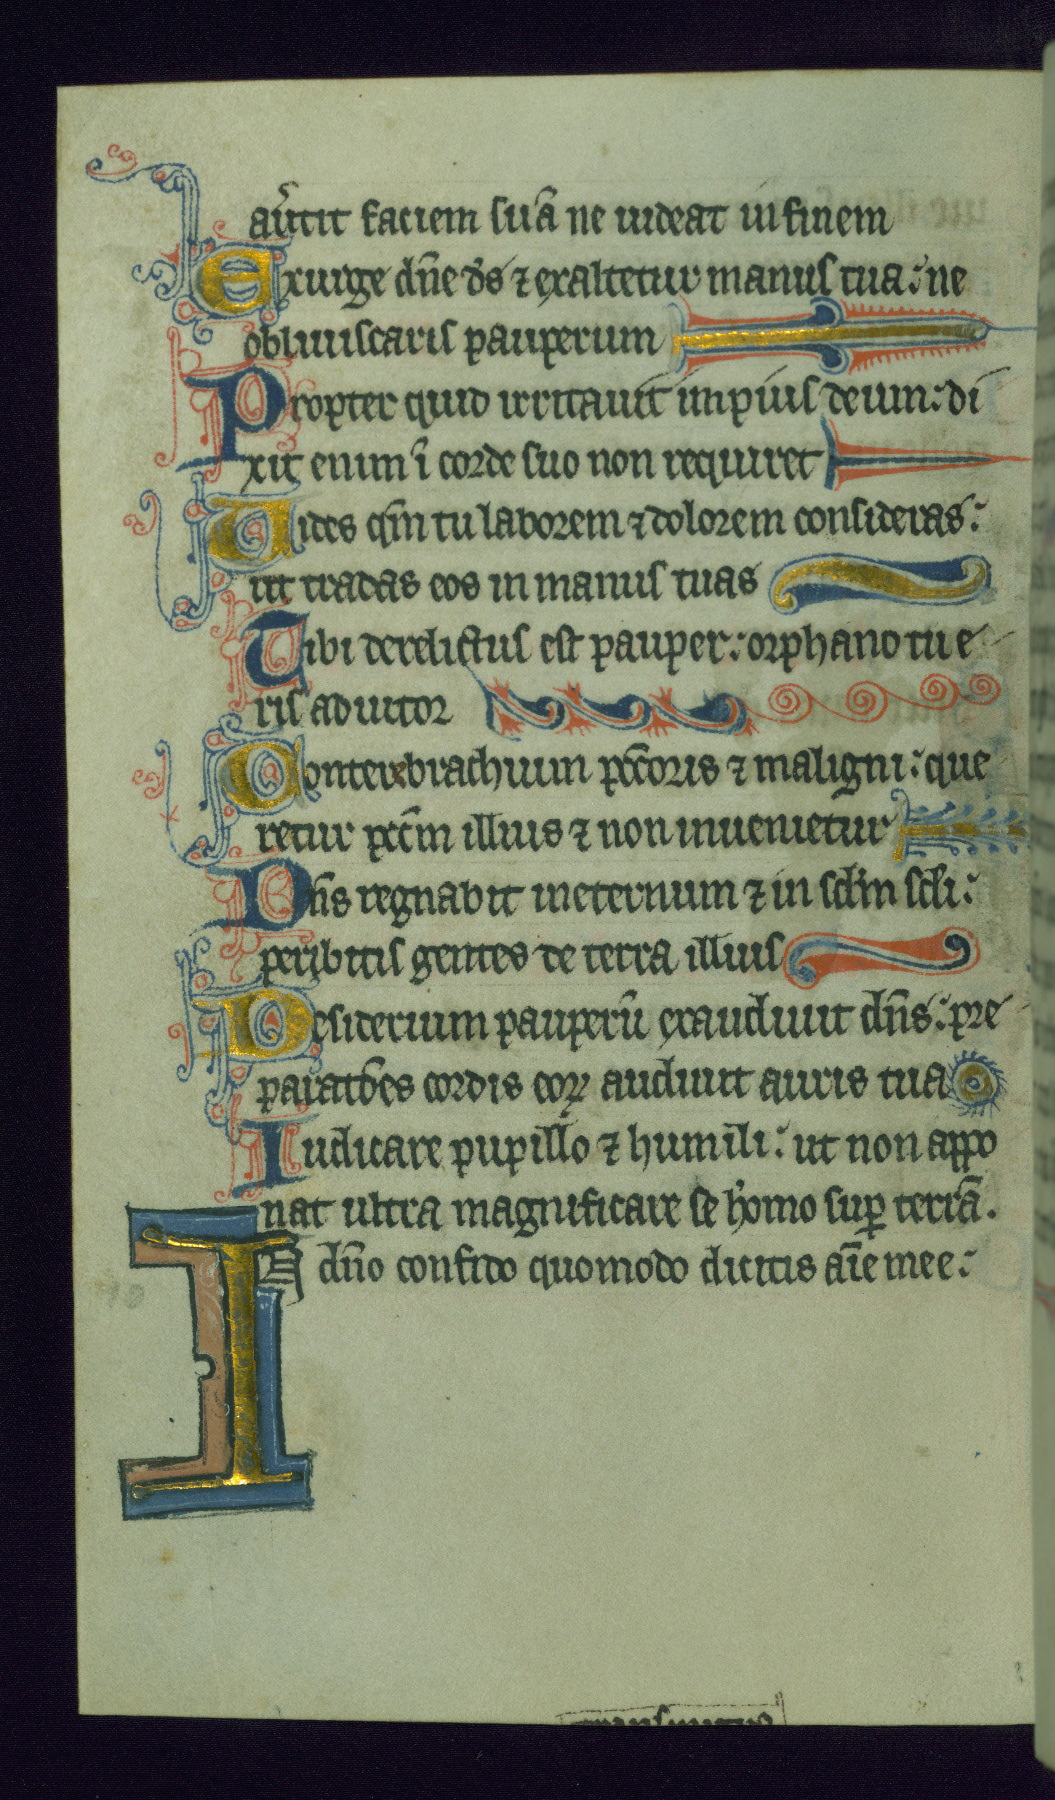 aũtit faciem suã ne uideat in finem
Exurge dñe ds̃ ⁊ exaltetur manus tua: ne
obliuiscaris pauperum
Propter quid irritauit impius deum: di
xit enim ĩ corde suo non requiret
Uides qm̃ tu laborem ⁊ dolorem consideras:
ut tradas eos in manus tuas
Tibi derelictus est pauper: orphano tu e
ris adiutor
Contere brachium pcc̃oris ⁊ maligni: que
retur pcc̃m illius ⁊ non inuenietur
Dñs regnabit ineternum ⁊ in sclm̃ scli̅:
peribitis gentes de terra illius
Desiderium pauperũ exaudiuit dñs: pre
paratões cordis eoꝝ audiuit auris tua
Iudicare pupillo ⁊ humili: ut non appo
nat ultra magnificare se homo suꝑ terrã.
IN dño confido quomodo dicitis aĩe mee: